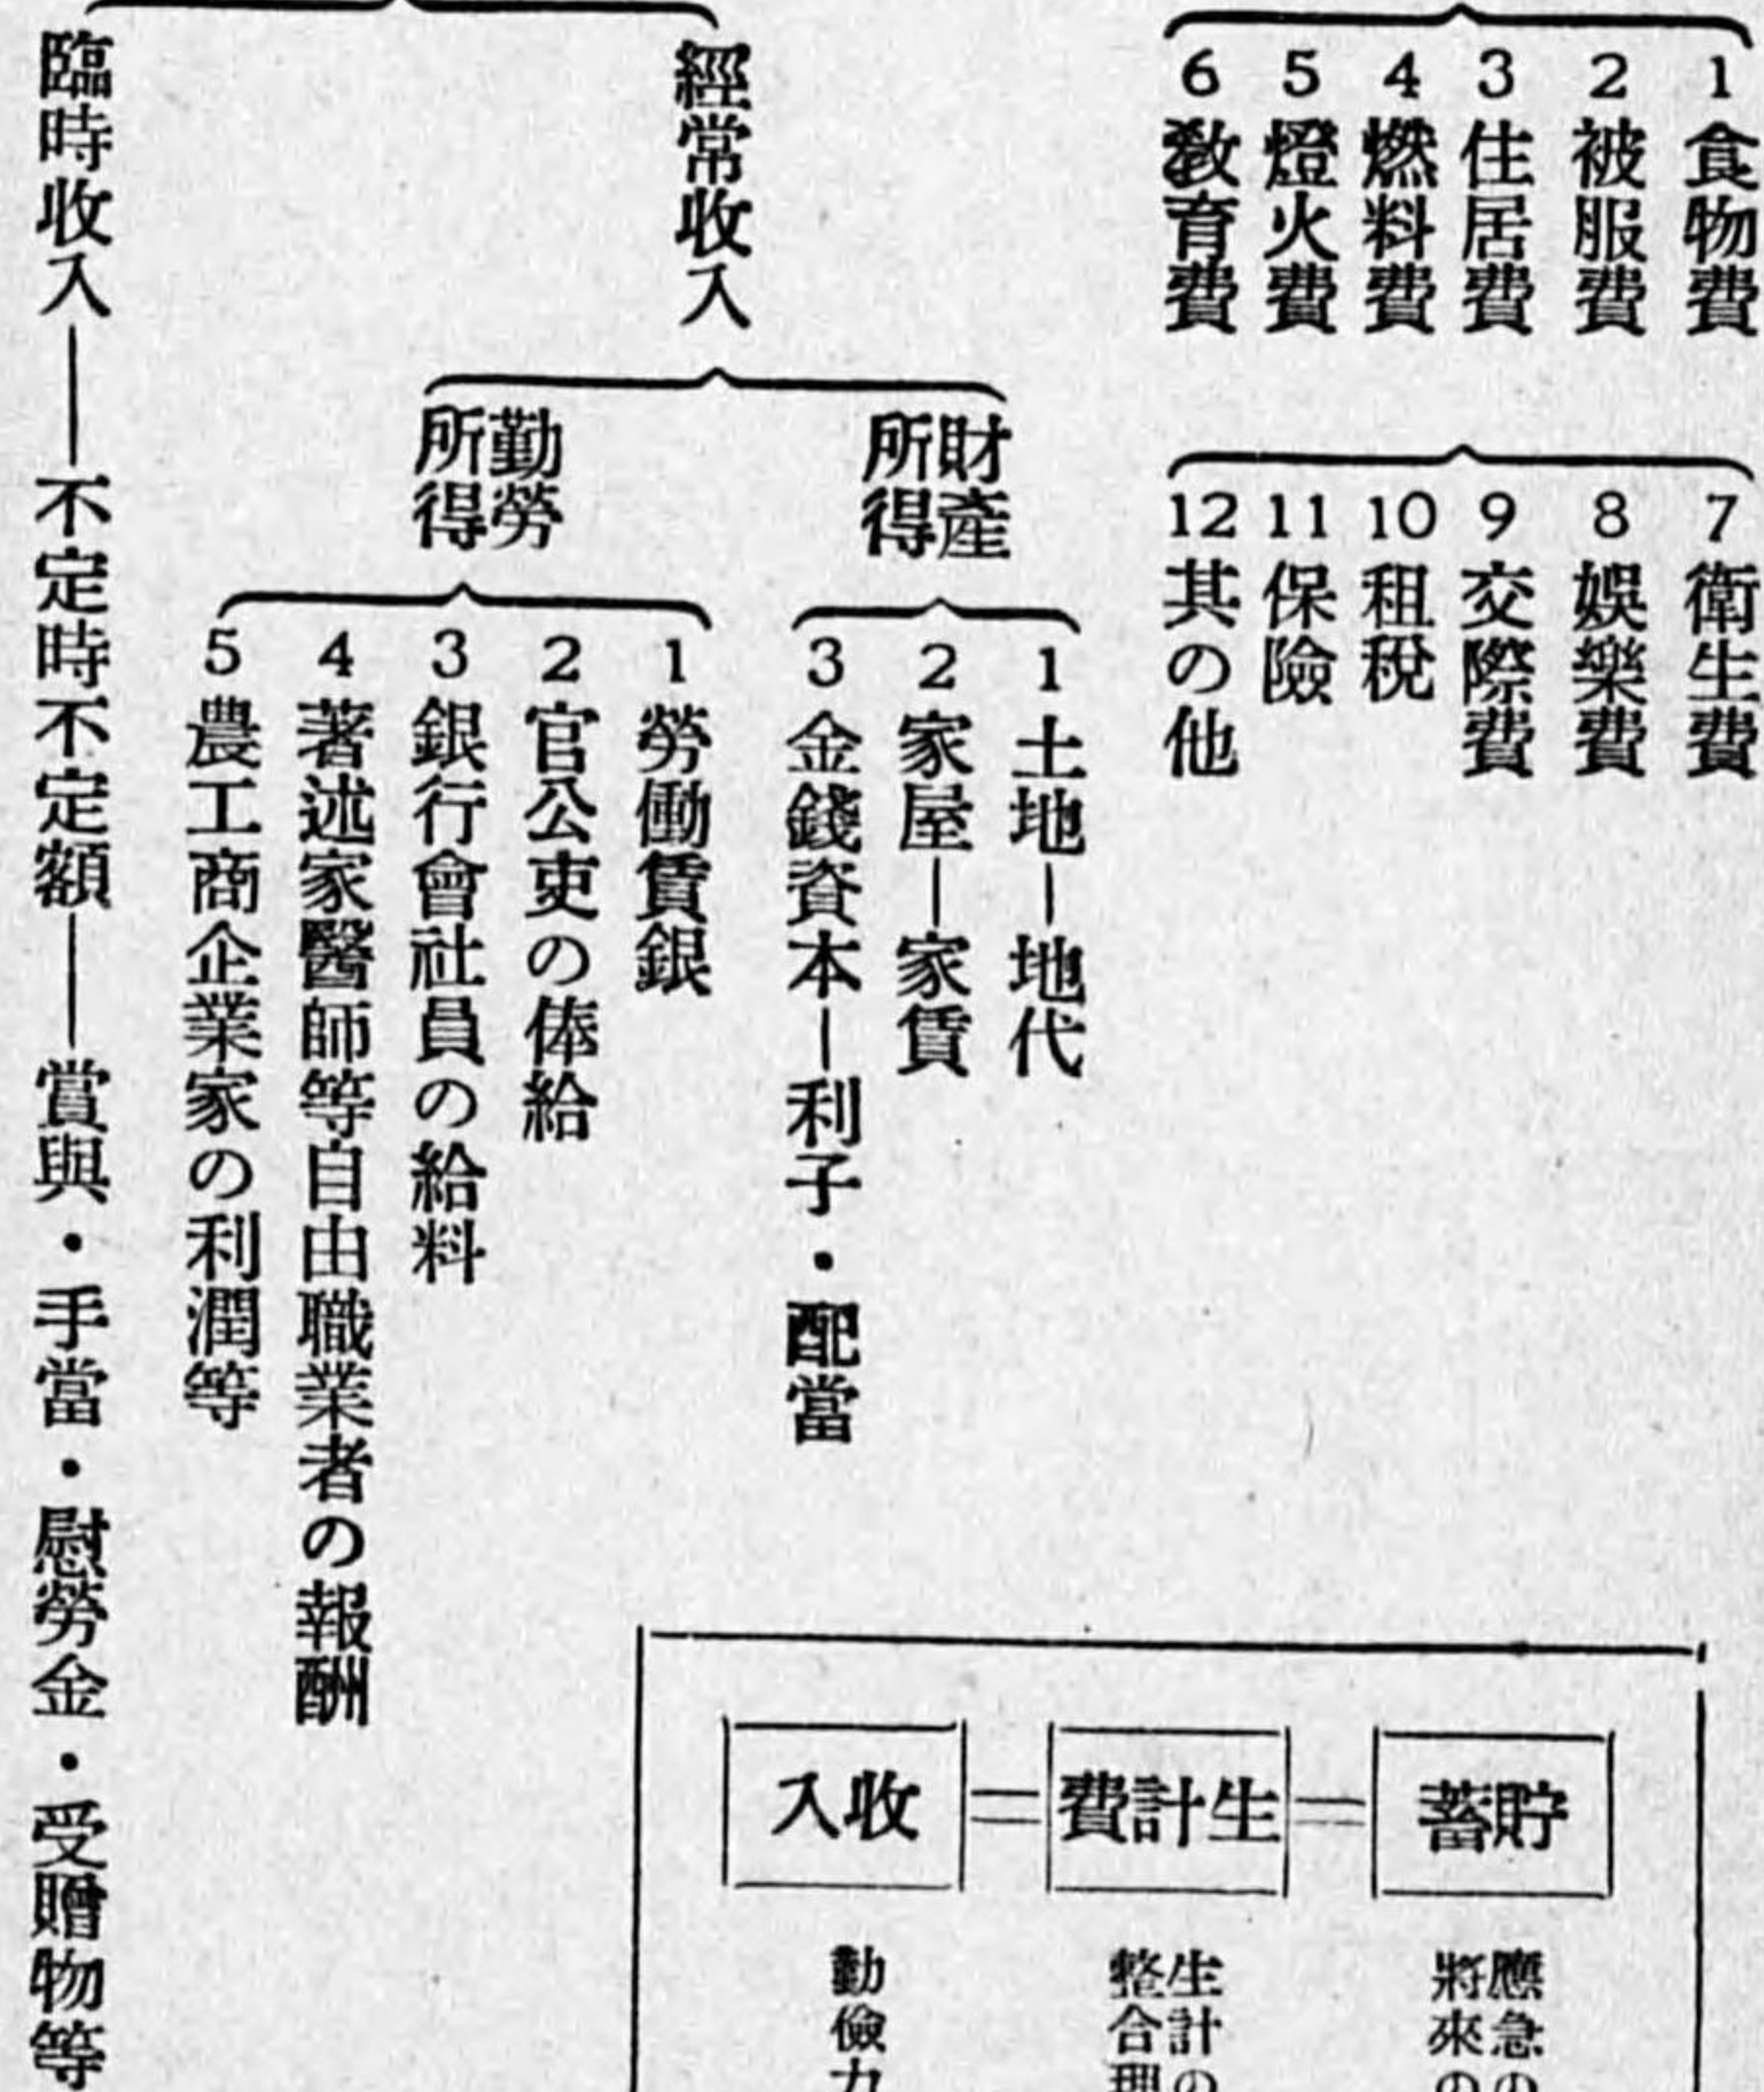 1 食物費
2 被服費
3 住居費
4 燃料費
5 燈火費
6 敎育費
7 衛生費
8 娛樂費
9 交際費
10 租稅
11 保險
12 其の他
經常收入
財產
所得
1 土地―地代
2 家屋―家賃
3 金錢資本―利子・配當
勤勞
所得
1 勞働賃銀
2 官公吏の俸給
3 銀行會社員の給料
4 著述家醫師等自由職業者の報酬
5 農工商企業家の利潤等
臨時收入――不定時不定額――賞與・手當・慰勞金・受贈物等
蓄貯
應急の
將來の
費計生
生計の
整合理
入收
勤儉力